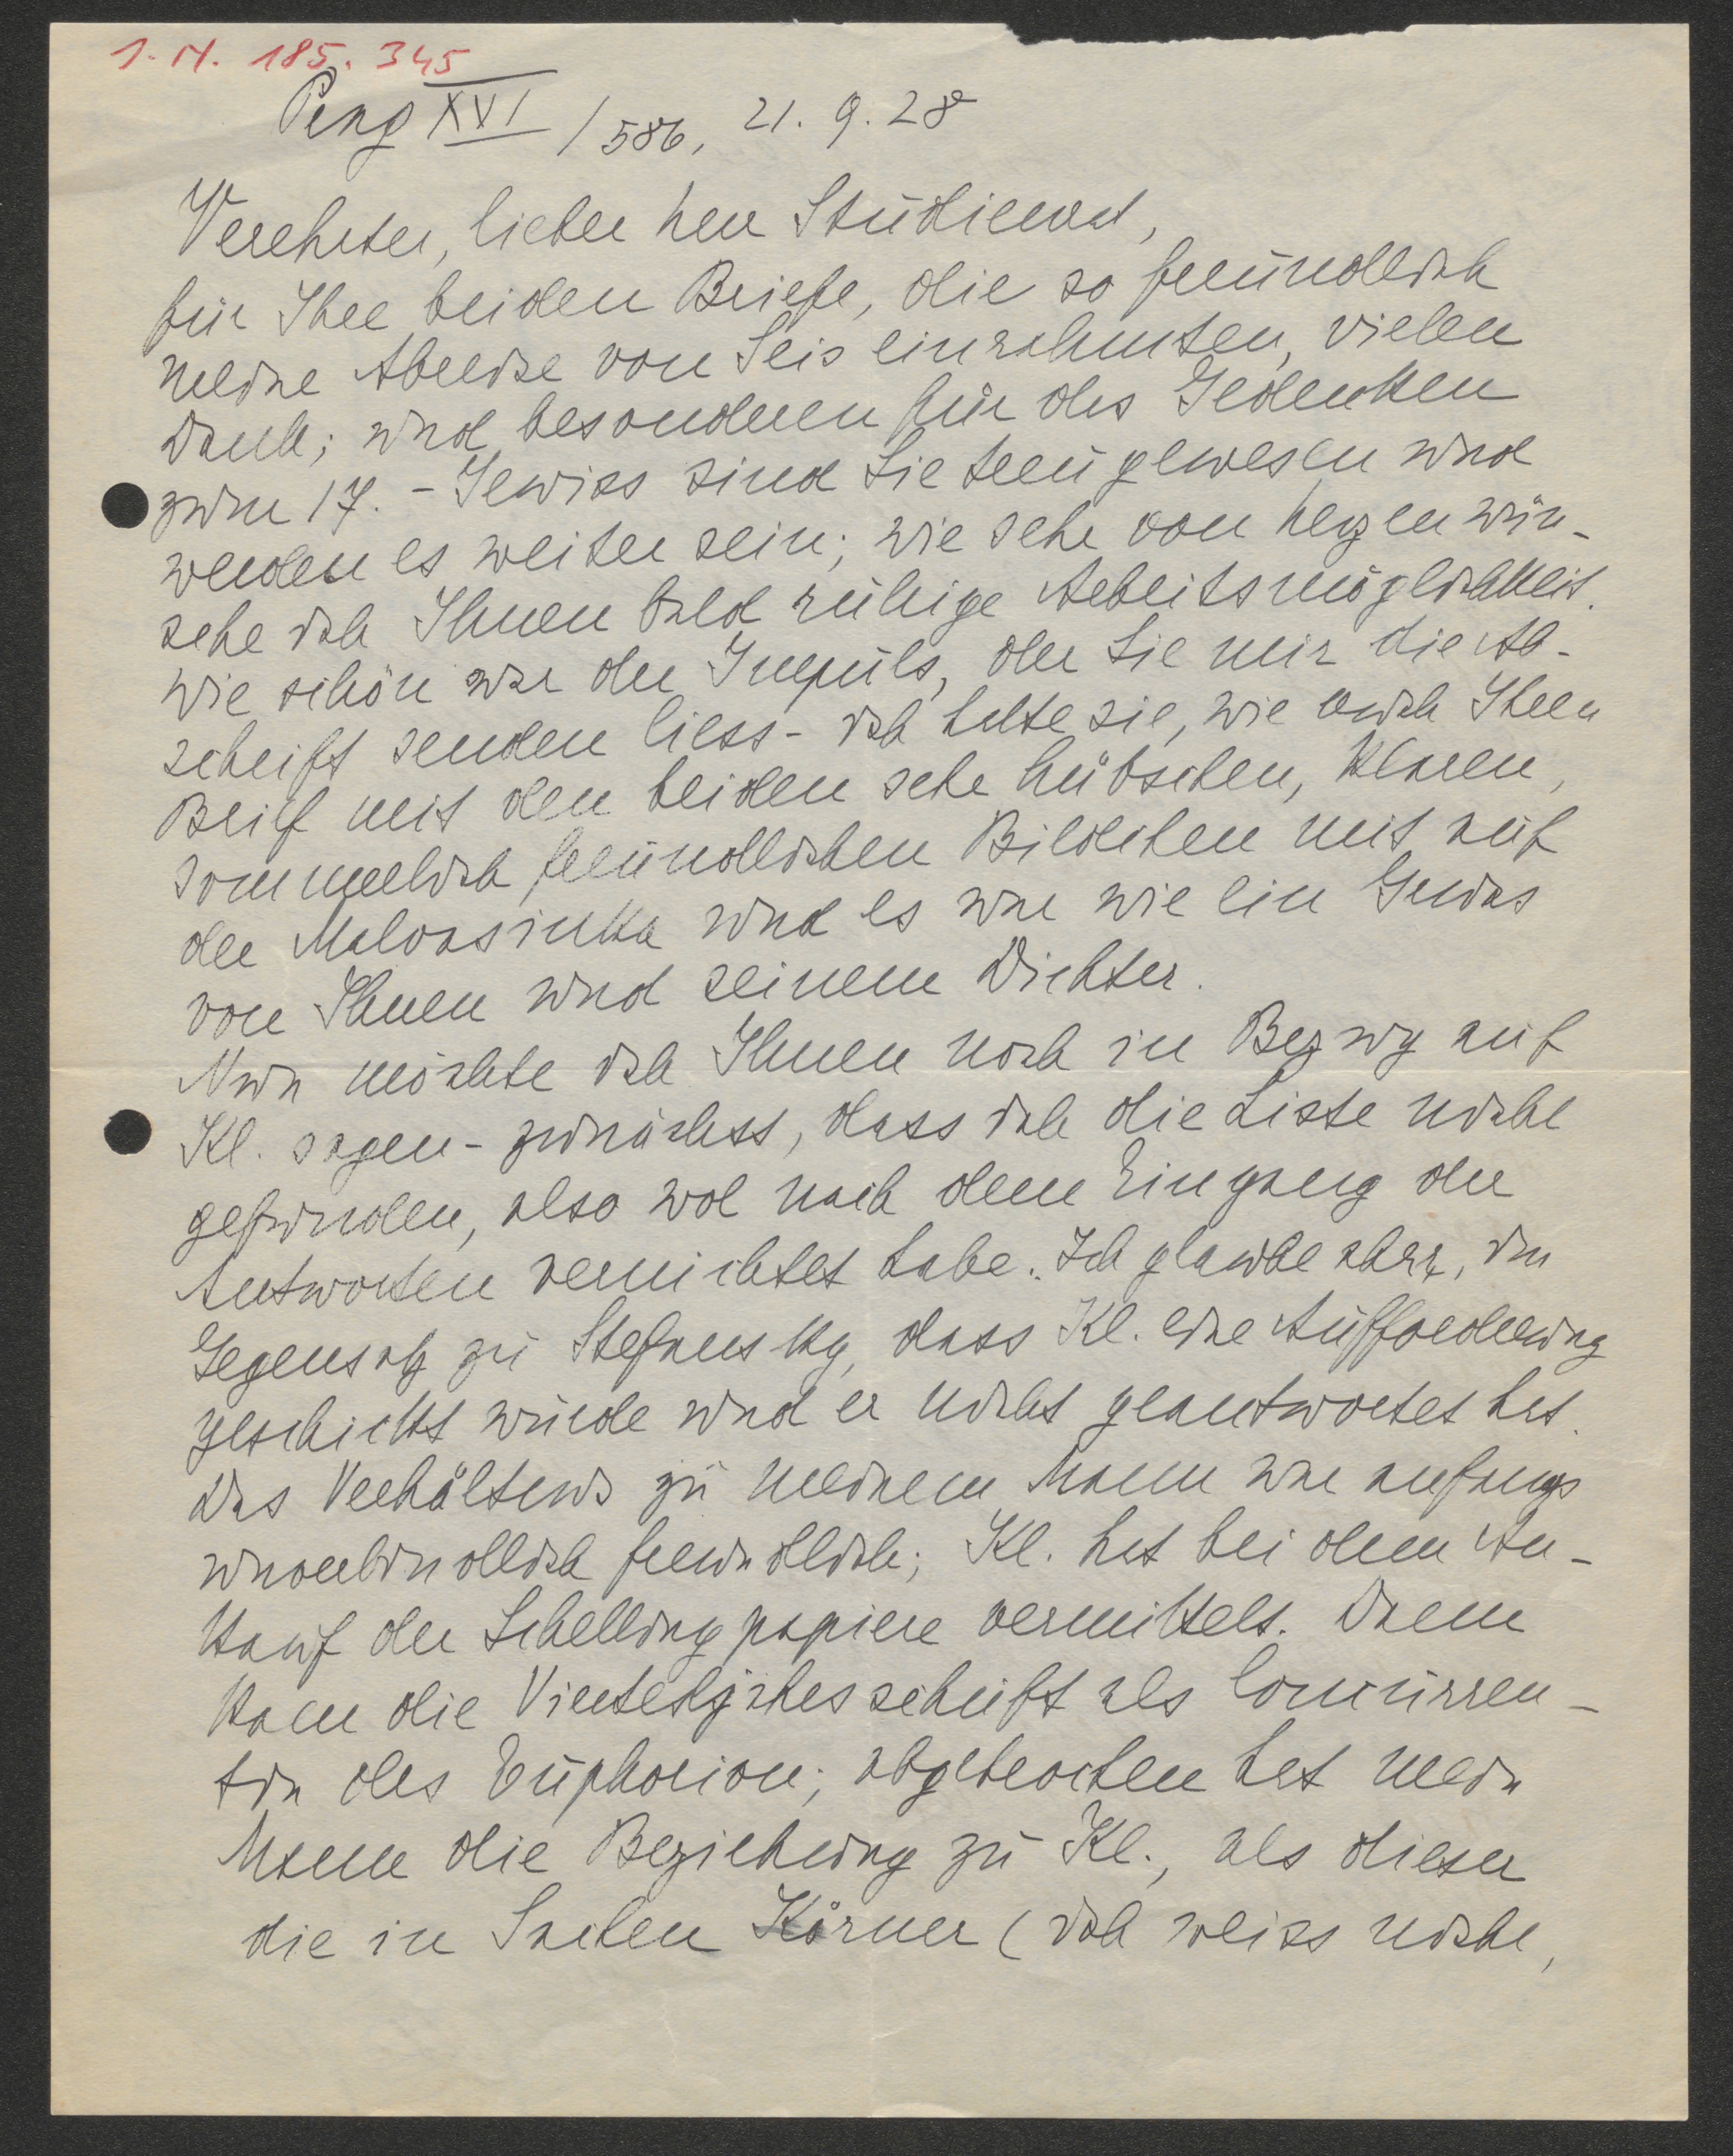 I.N. 185.345
Prag XVI / 586, 21.9.28
Verehrter, lieber Herr Studienrat,
für Ihre beiden Briefe, die so freundlich
meine Abreise von Seis einrahmten, vielen
Dank; und besonderen für das Gedenken
zum 17. - Gewiss sind Sie treu gewesen und
werden es weiter sein; wie sehr von Herzen wün-
sche ich Ihnen bald ruhige Arbeitsmöglichkeit.
Wie schön war der Impuls, der Sie mir die Ab-
schrift senden liess - ich hatte sie, wie auch Ihren
Brief mit den beiden sehr hübschen, klaren,
sommerlich freundlichen Bildchen mit auf
der Malvasinka und es war wie ein Gruss
von Ihnen und seinem Dichter.
Nun möchte ich Ihnen noch in Bezug auf
Kl. sagen - zunächst, dass ich die Liste nicht
gefunden, also wol nach dem Eingang der
Antworten vernichtet habe. Ich glaube aber, im
Gegensatz zu Stefansky, dass Kl. eine Aufforderung
geschickt wurde und er nicht geantwortet hat.
Das Verhältnis zu meinem Mann war anfangs
unverbindlich freundlich; Kl. hat bei dem An-
kauf der Schellingpapiere vermittelt. Dann
kam die Vierteljahrsschrift als Concurren-
tin des Euphorion; abgebrochen hat mein
Mann die Beziehung zu Kl., als dieser
die in Sachen Körner (ich weiss nicht,